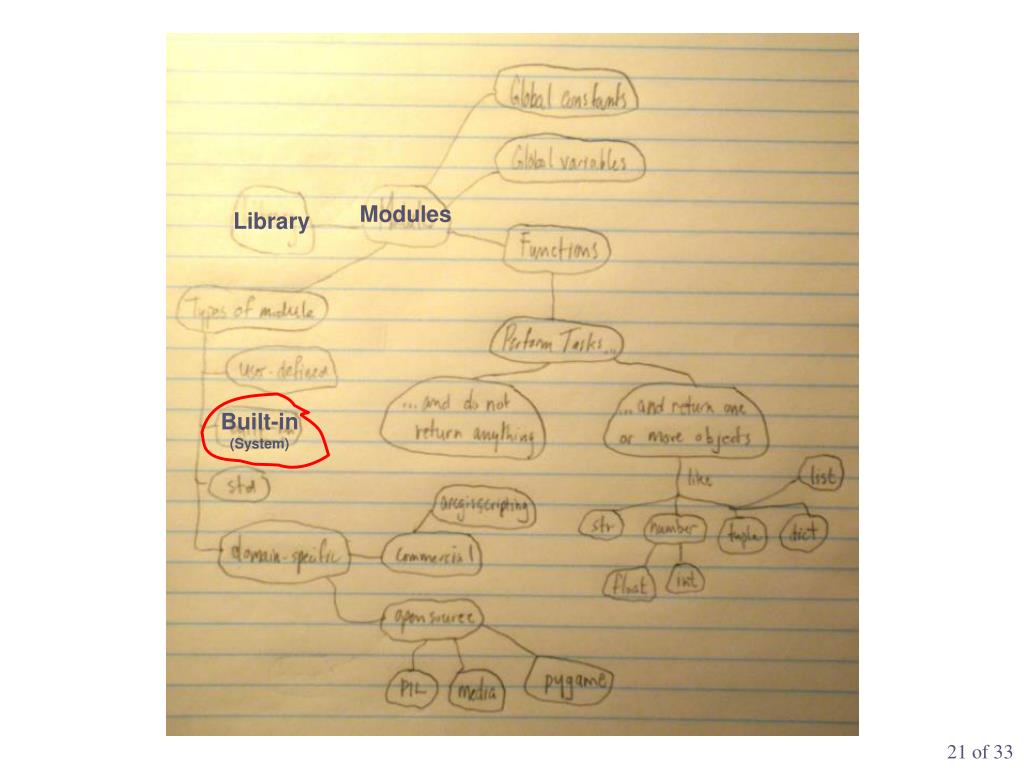 Global constants
Global variables
Library
Modules
Functions
Types of module
Perform Tasks...
user-defined
...and do not
return anything
...and return one
or more objects
Built-in
(System)
like
list
std
arcgisscripting
str
number
tuple
dict
domain-specific
commercial
float
int
opensource
PIL
media
pygame
21 of 33